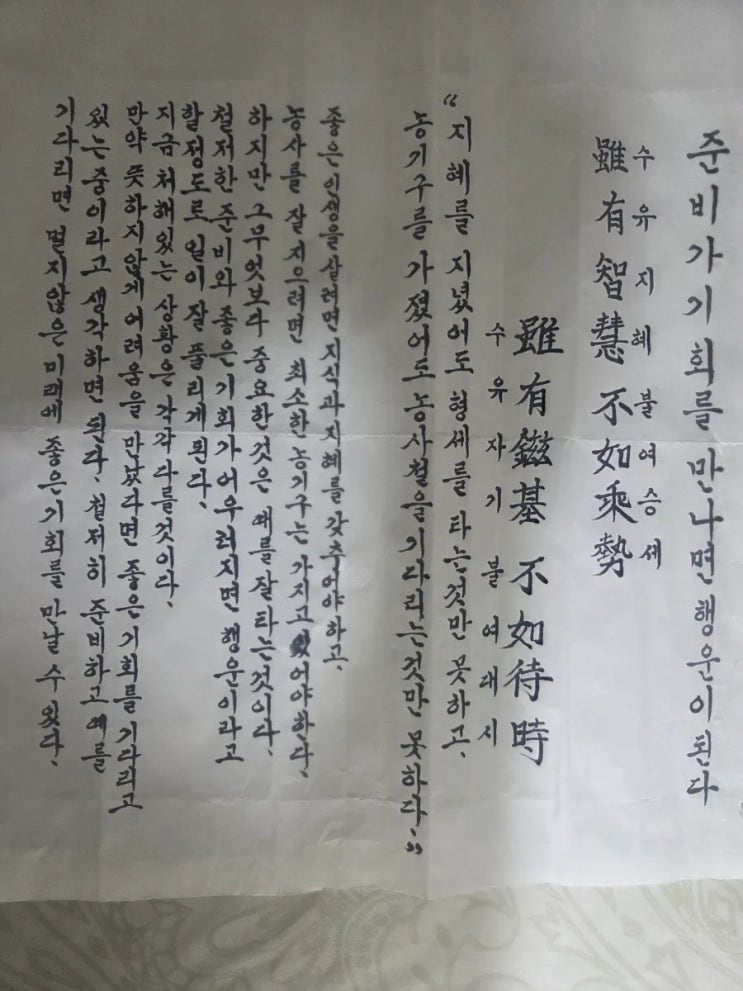 준비가기회를 만나면행운이된다
수유지혜불여승세
雖有智慧 不如乘勢
雖有鎡基 不如待時
수유자기불여대시
“지혜를 지녔어도 형세를 타는것만 못하고,
농기구를 가졌어도 농사철을기다리는것만 못하다.”
좋은 인생을살려면지식과지혜를갖추어야하고,
농사를 잘지으려면 최소한농기구는 가지고있어야한다.
하지만 그무엇보다 중요한것은 때를잘타는것이다.
철저한 준비와 좋은기회가어우러지면 행운이라고
할정도로 일이 잘 풀리게된다.
지금 처해있는 상황은 각각 다를것이다.
만약 뜻하지않게어려움을 만났다면 좋은기회를 기다리고
있는중이라고 생각하면 된다. 철저히 준비하고 때를
기다리면 멀지않은미래에 좋은기회를 만날 수있다.